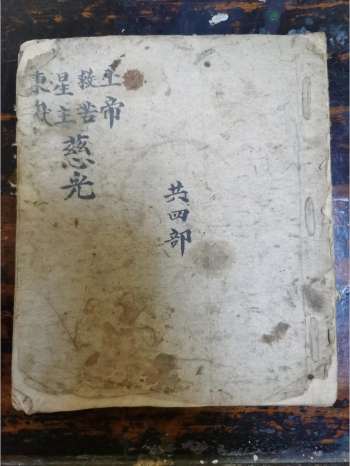 玉帝
救苦
星主
東
慈光
共四部